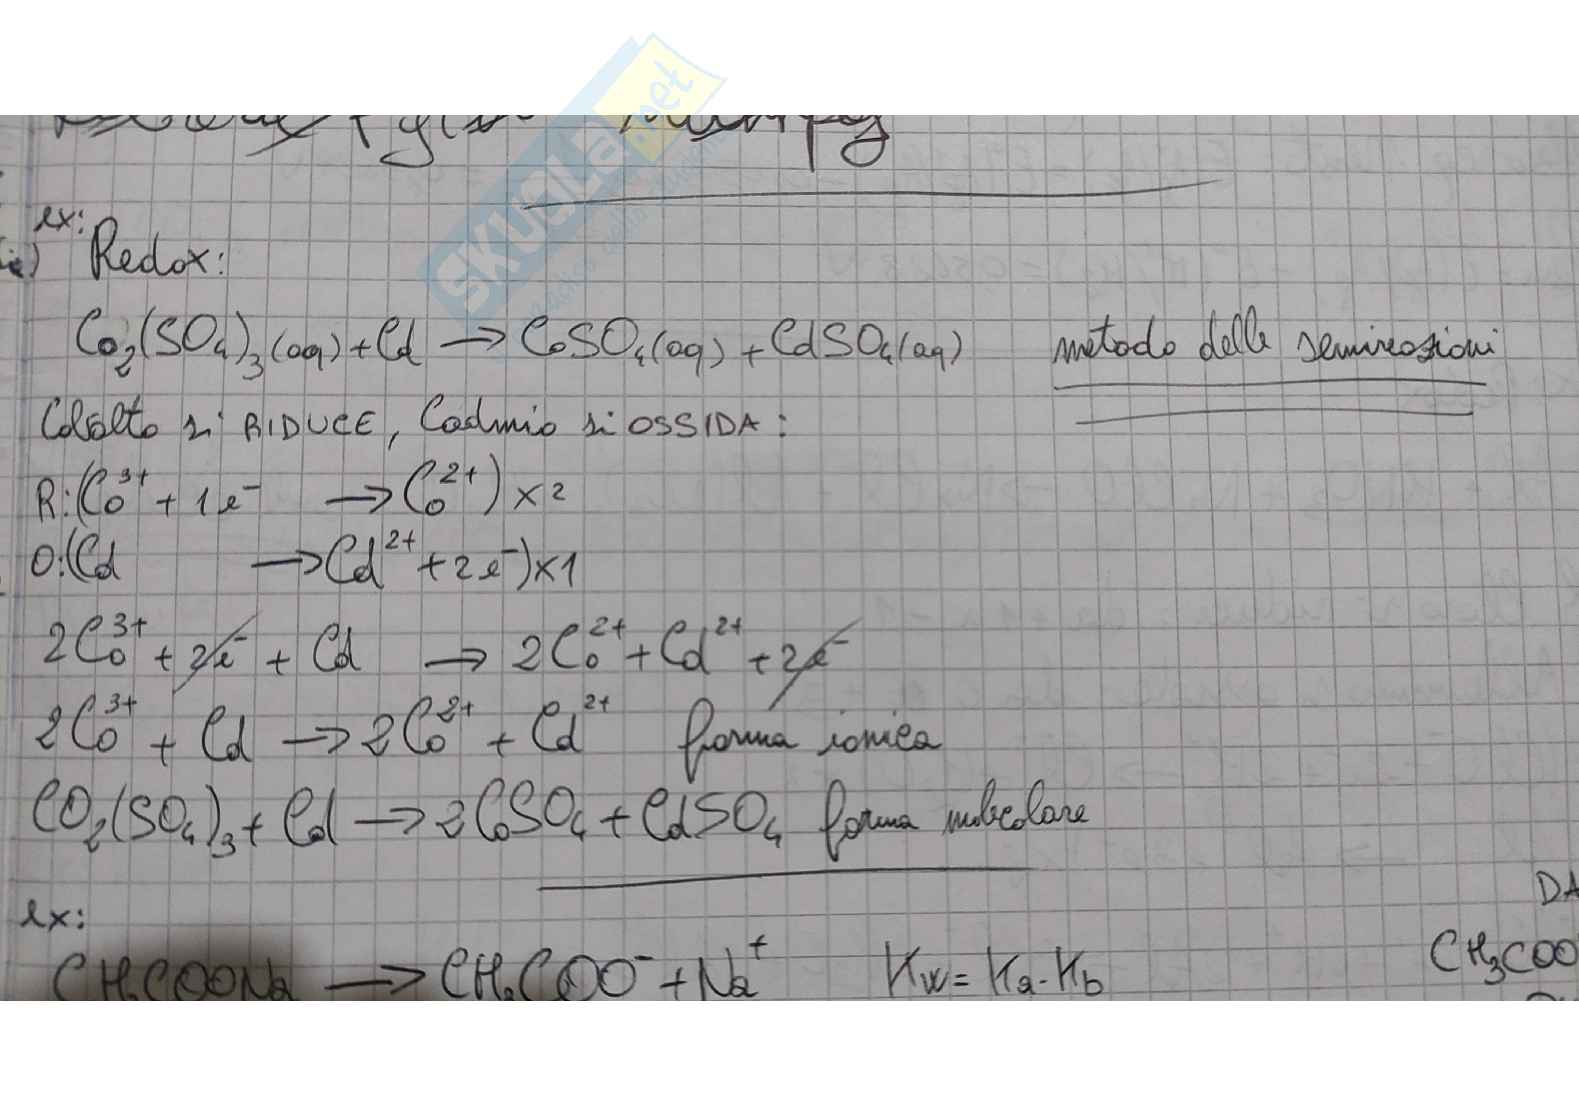 ex:
Redox:
Co₂(SO₄)₃(aq) + Cd → CoSO₄(aq) + CdSO₄(aq) metodo delle semireazioni
Cobalto si RIDUCE, Cadmio si OSSIDA:
R:(Co³⁺ + 1e⁻ → Co²⁺) × 2
O:(Cd → Cd²⁺ + 2e⁻) × 1
2Co³⁺ + 2e⁻ + Cd → 2Co²⁺ + Cd²⁺ + 2e⁻
2Co³⁺ + Cd → 2Co²⁺ + Cd²⁺ forma ionica
CO₂(SO₄)₃ + Cd → 2CoSO₄ + CdSO₄ forma molecolare
ex:
DA
CH₃COONa → CH₃COO⁻ + Na⁺ Kw = Ka·Kb CH₃COO
SKUOLA.net